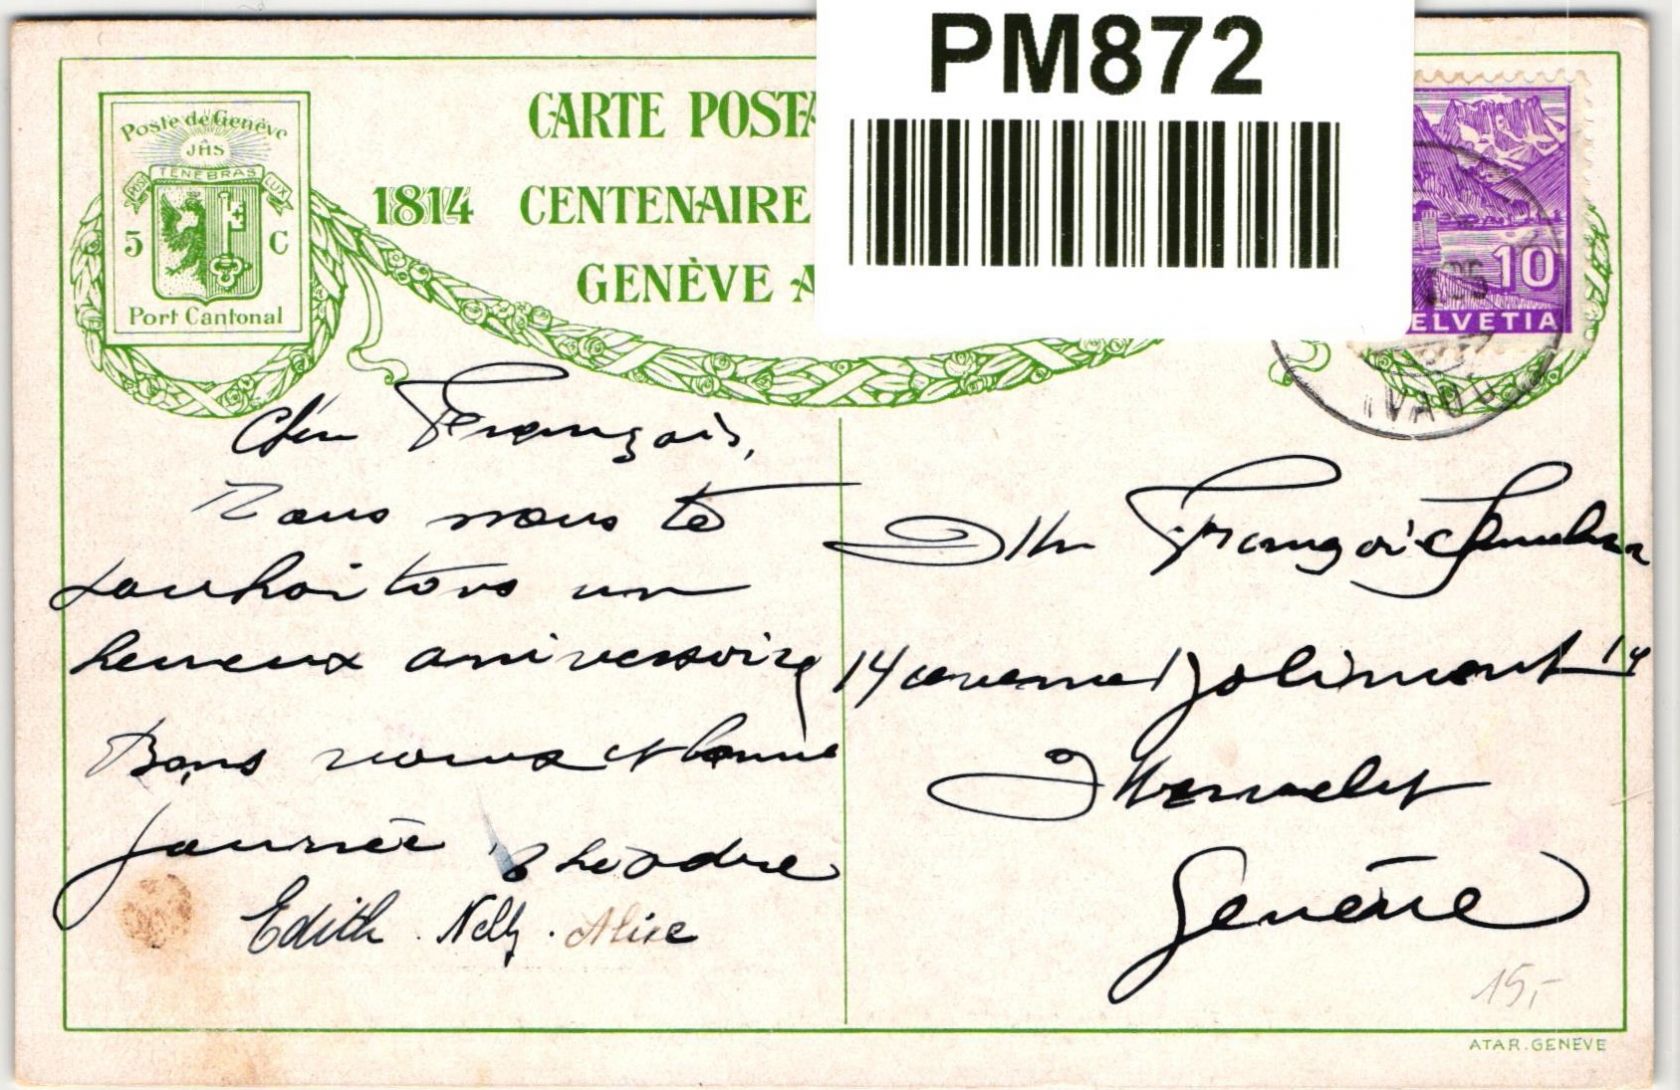 PM872
CARTE POSTA
1814 CENTENAIRE
GENÈVE A
Poste de Genève
JHS
POST TENEBRAS LUX
5 C
Port Cantonal
10
HELVETIA
VAUD
Cher François,
nous te
souhaitons un
heureux aniversaire
Bons et bonne
journée Théodre
Edith. Nelly. Alice
Mr François
14 avenue Jolimont 14
Genève
15,-
ATAR. GENÈVE